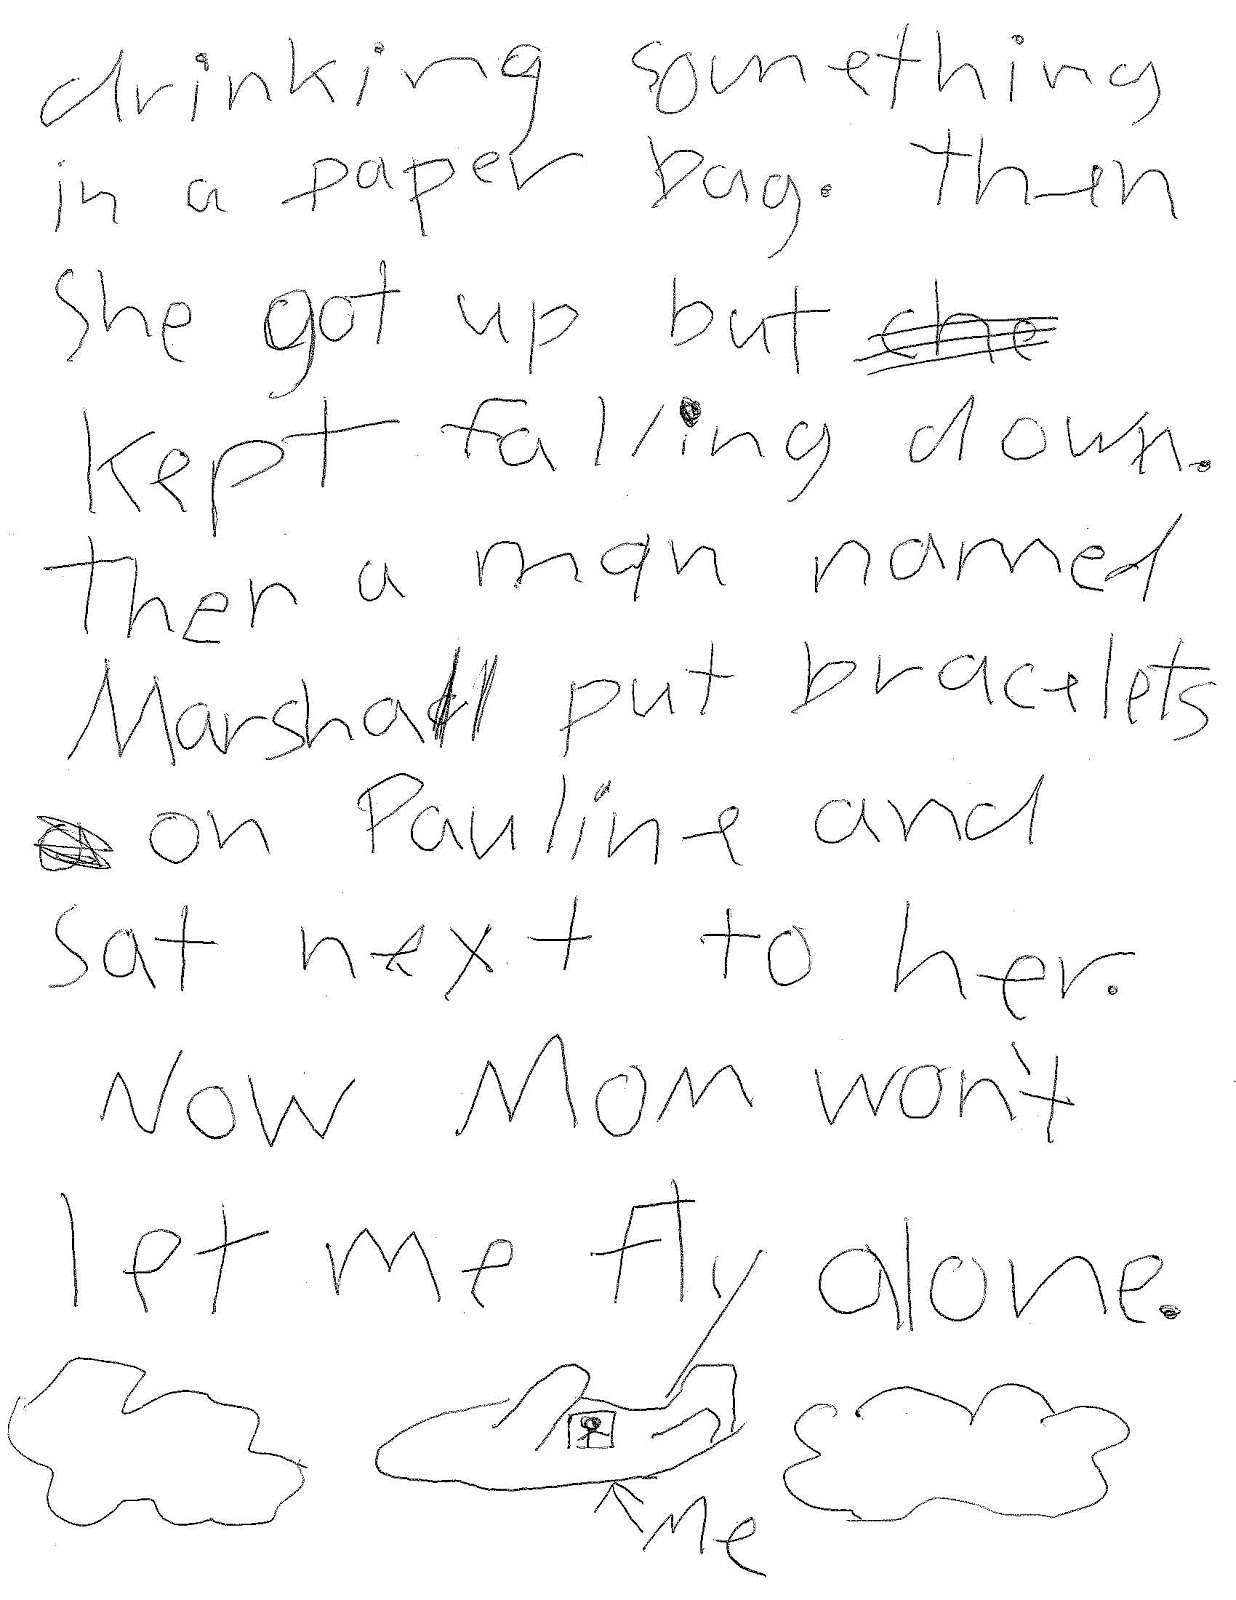 drinking something
in a paper bag. Then
She got up but she
kept falling down.
Then a man named
Marshall put bracelets
on Pauline and
sat next to her.
Now Mom won't
let me fly alone.
Me